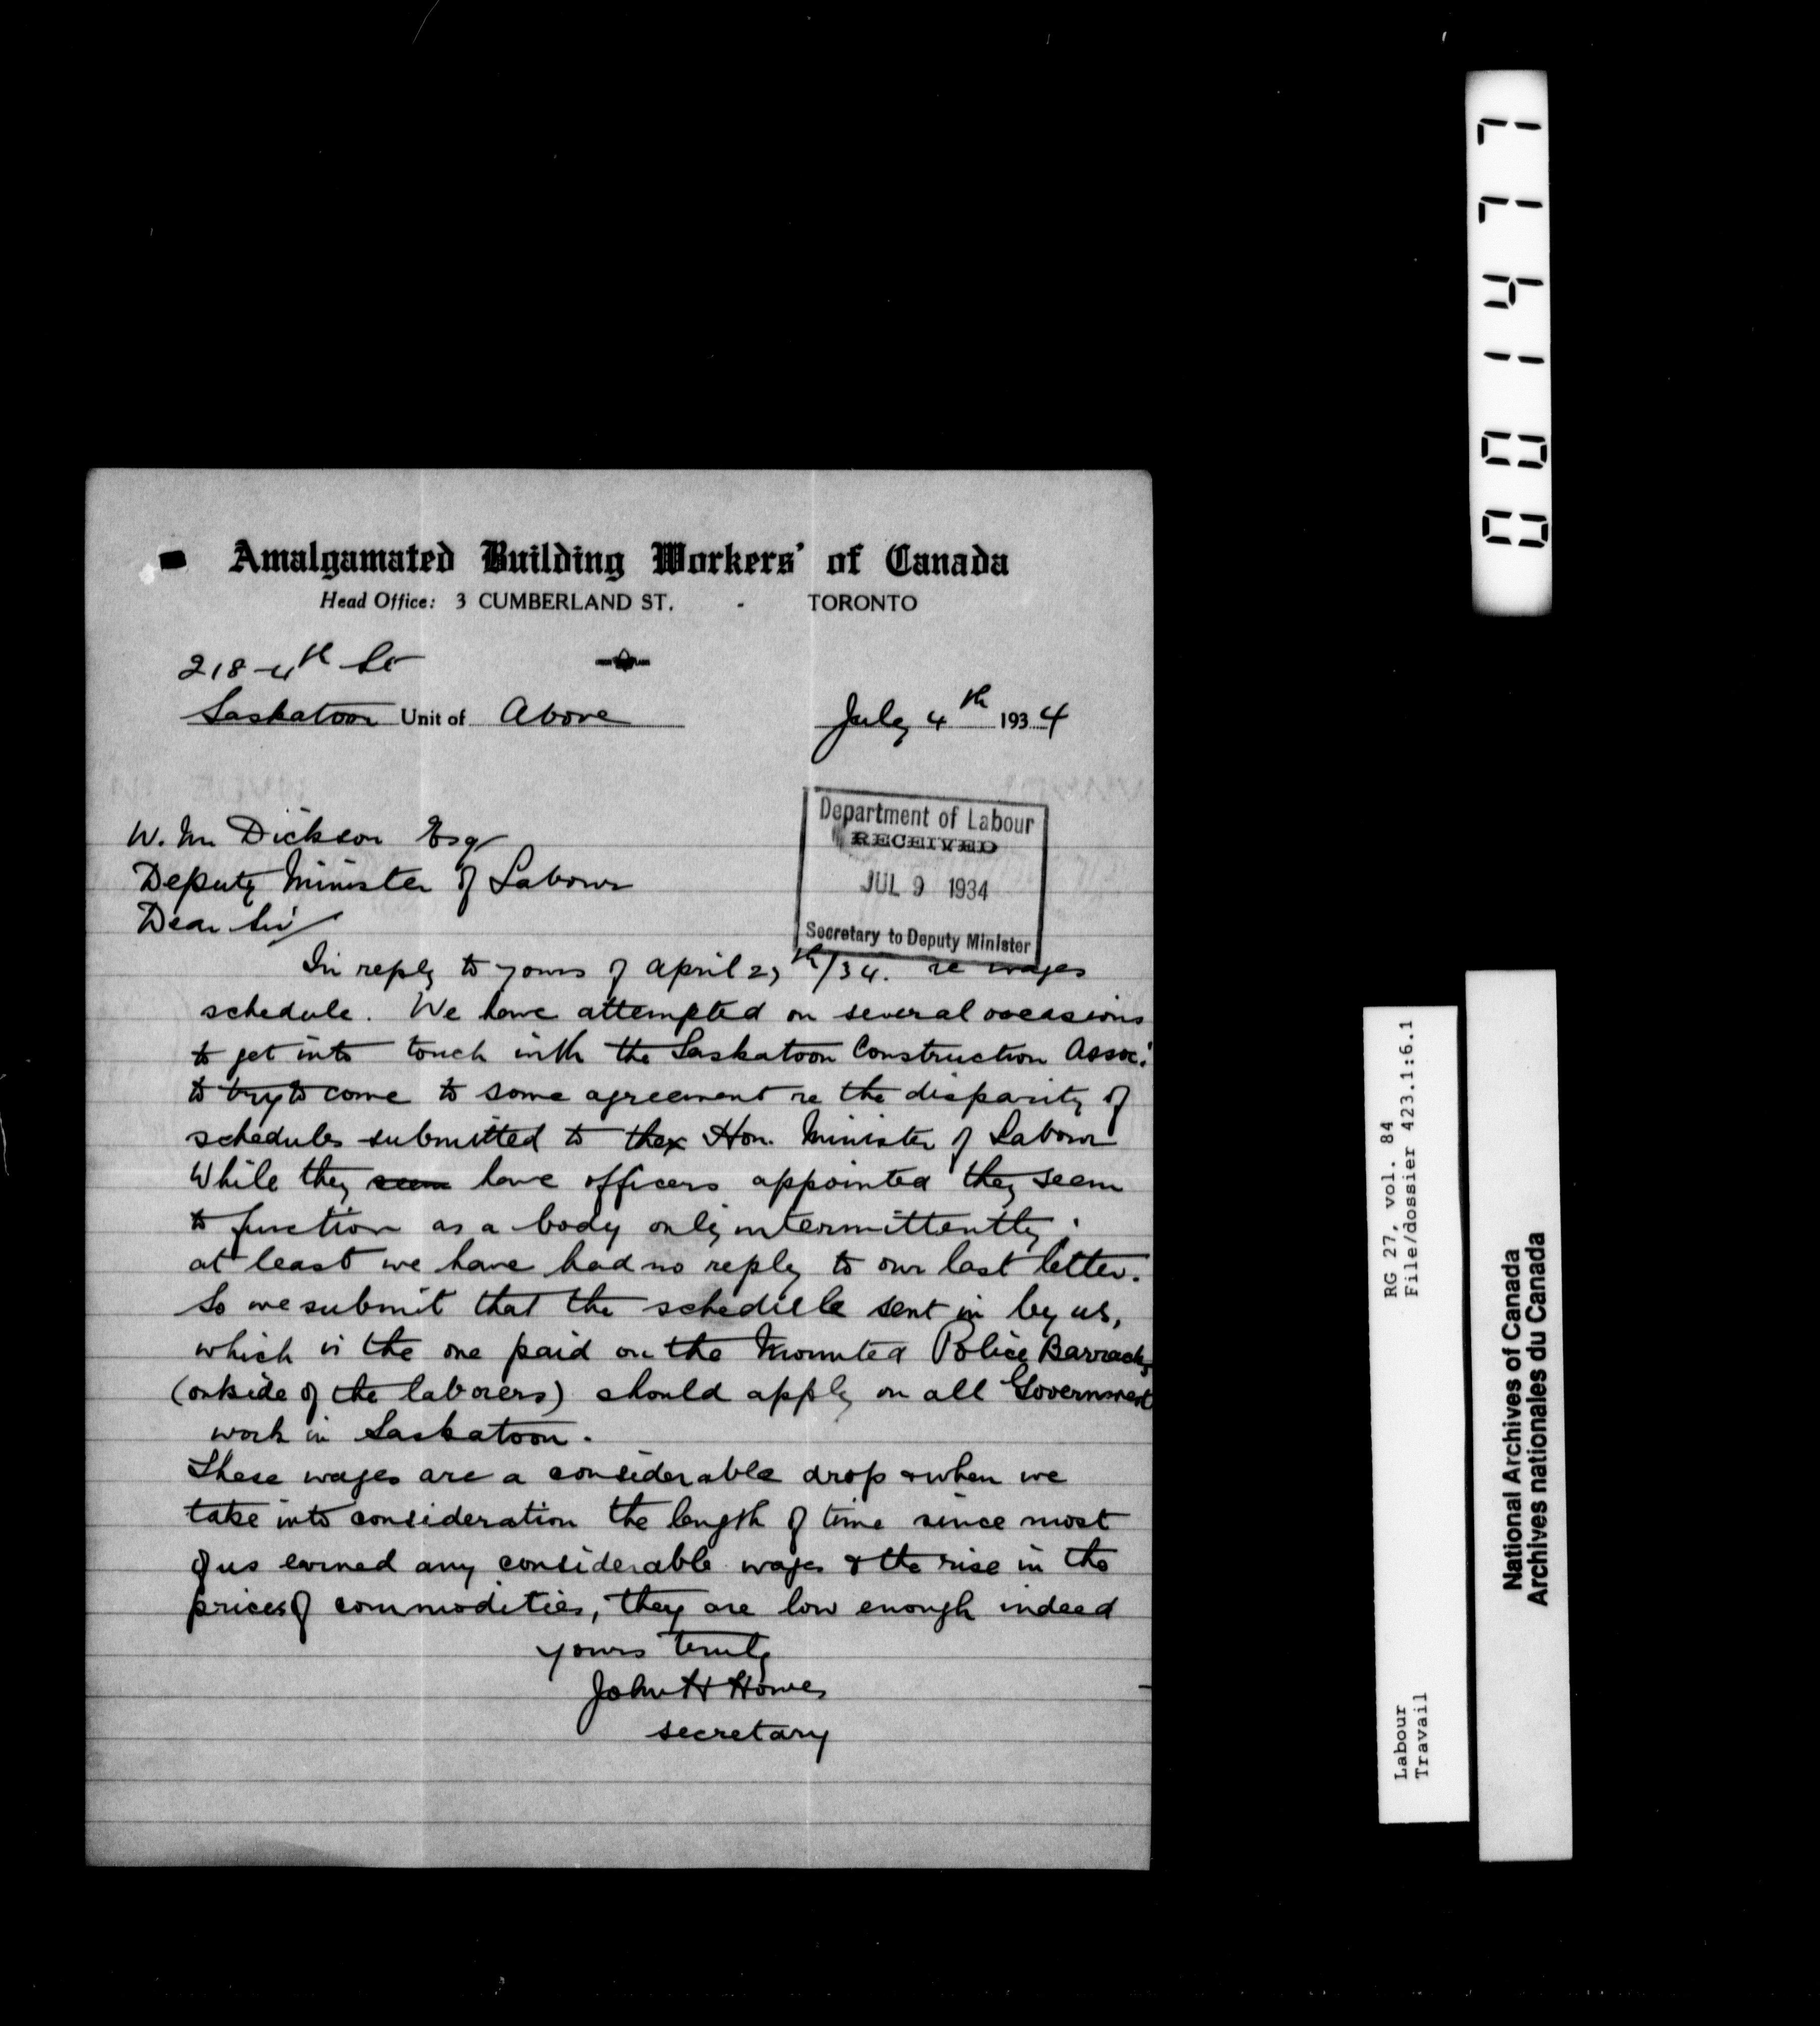 Amalgamated Building Workers' of Canada
Head Office: 3 CUMBERLAND ST. - TORONTO
218-4th St
Saskatoon Unit of Above
July 4th 1934
Department of Labour
RECEIVED
JUL 9 1934
Secretary to Deputy Minister
W. M. Dickson Esq
Deputy Minister of Labour
Dear Sir/
In reply to yours of April 27th/34. re wages
schedule. We have attempted on several occasions
to get into touch with the Saskatoon Construction Assoc.
to try to come to some agreement re the disparity of
schedules submitted to the Hon. Minister of Labour
While they seem have officers appointed they seem
to function as a body only intermittently;
at least we have had no reply to our last letter.
So we submit that the schedule sent in by us,
which is the one paid on the Mounted Police Barracks
(outside of the laborers) should apply on all Government
work in Saskatoon.
These wages are a considerable drop & when we
take into consideration the length of time since most
of us earned any considerable wages & the rise in the
prices of commodities, they are low enough indeed
yours truly
John H Howes
secretary
001477
RG 27, vol. 84
File/dossier 423.1:6.1
Labour
Travail
National Archives of Canada
Archives nationales du Canada